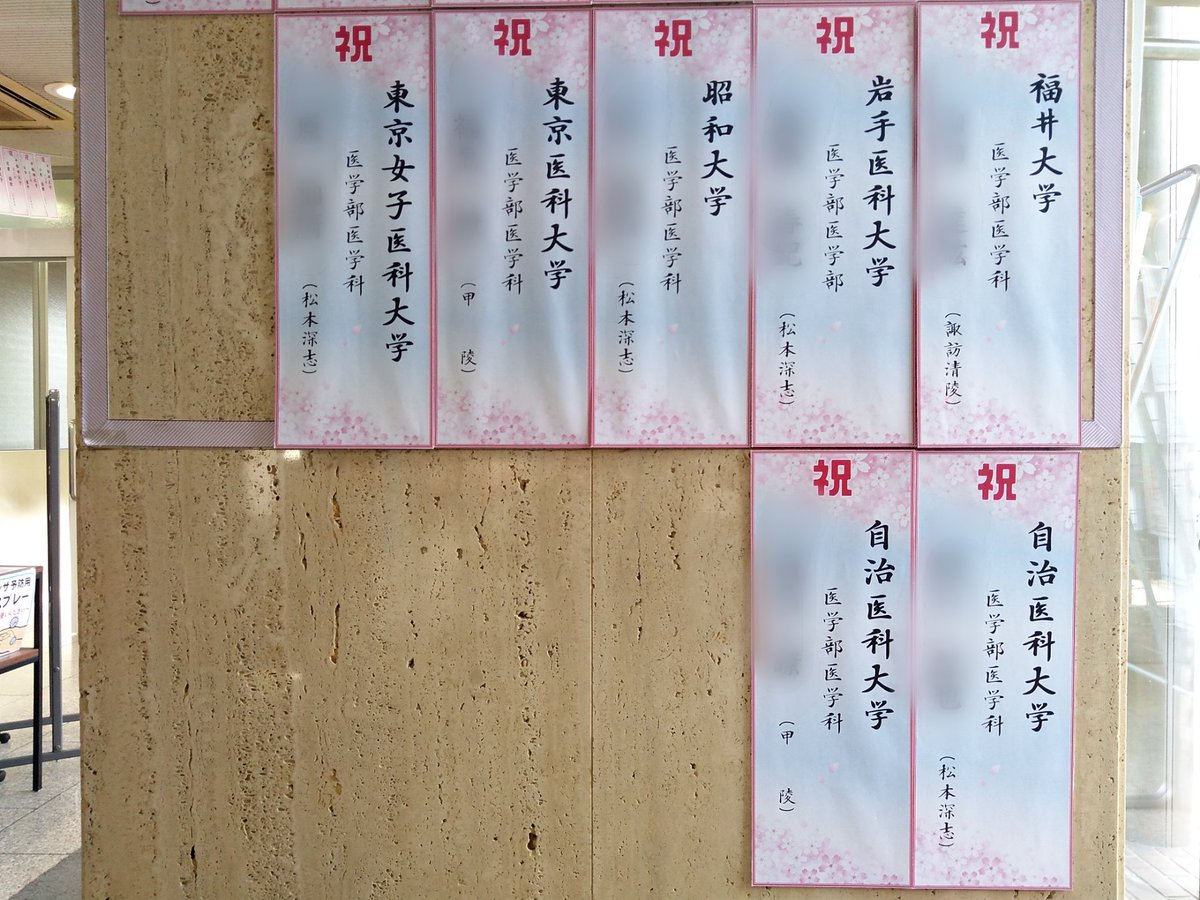 祝
福井大学
医学部医学科
（諏訪清陵）
祝
岩手医科大学
医学部医学部
（松本深志）
祝
昭和大学
医学部医学科
（松本深志）
祝
東京医科大学
医学部医学科
（甲　陵）
祝
東京女子医科大学
医学部医学科
（松本深志）
祝
自治医科大学
医学部医学科
（松本深志）
祝
自治医科大学
医学部医学科
（甲　陵）
予防用